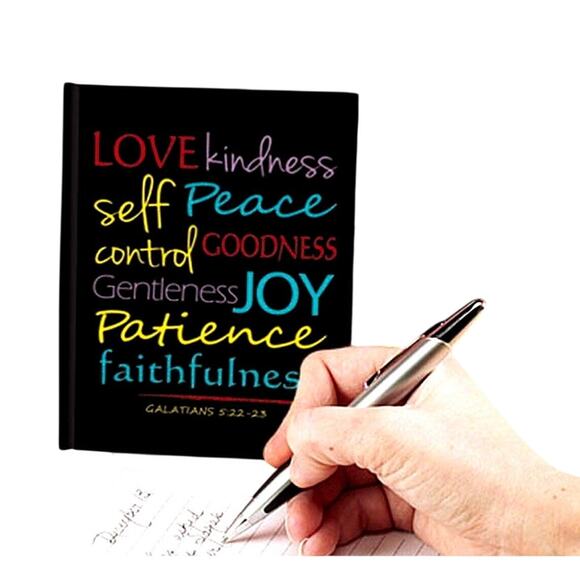 LOVE kindness
self Peace
control GOODNESS
Gentleness JOY
Patience
faithfulnes
GALATIANS 5:22-23
December 13